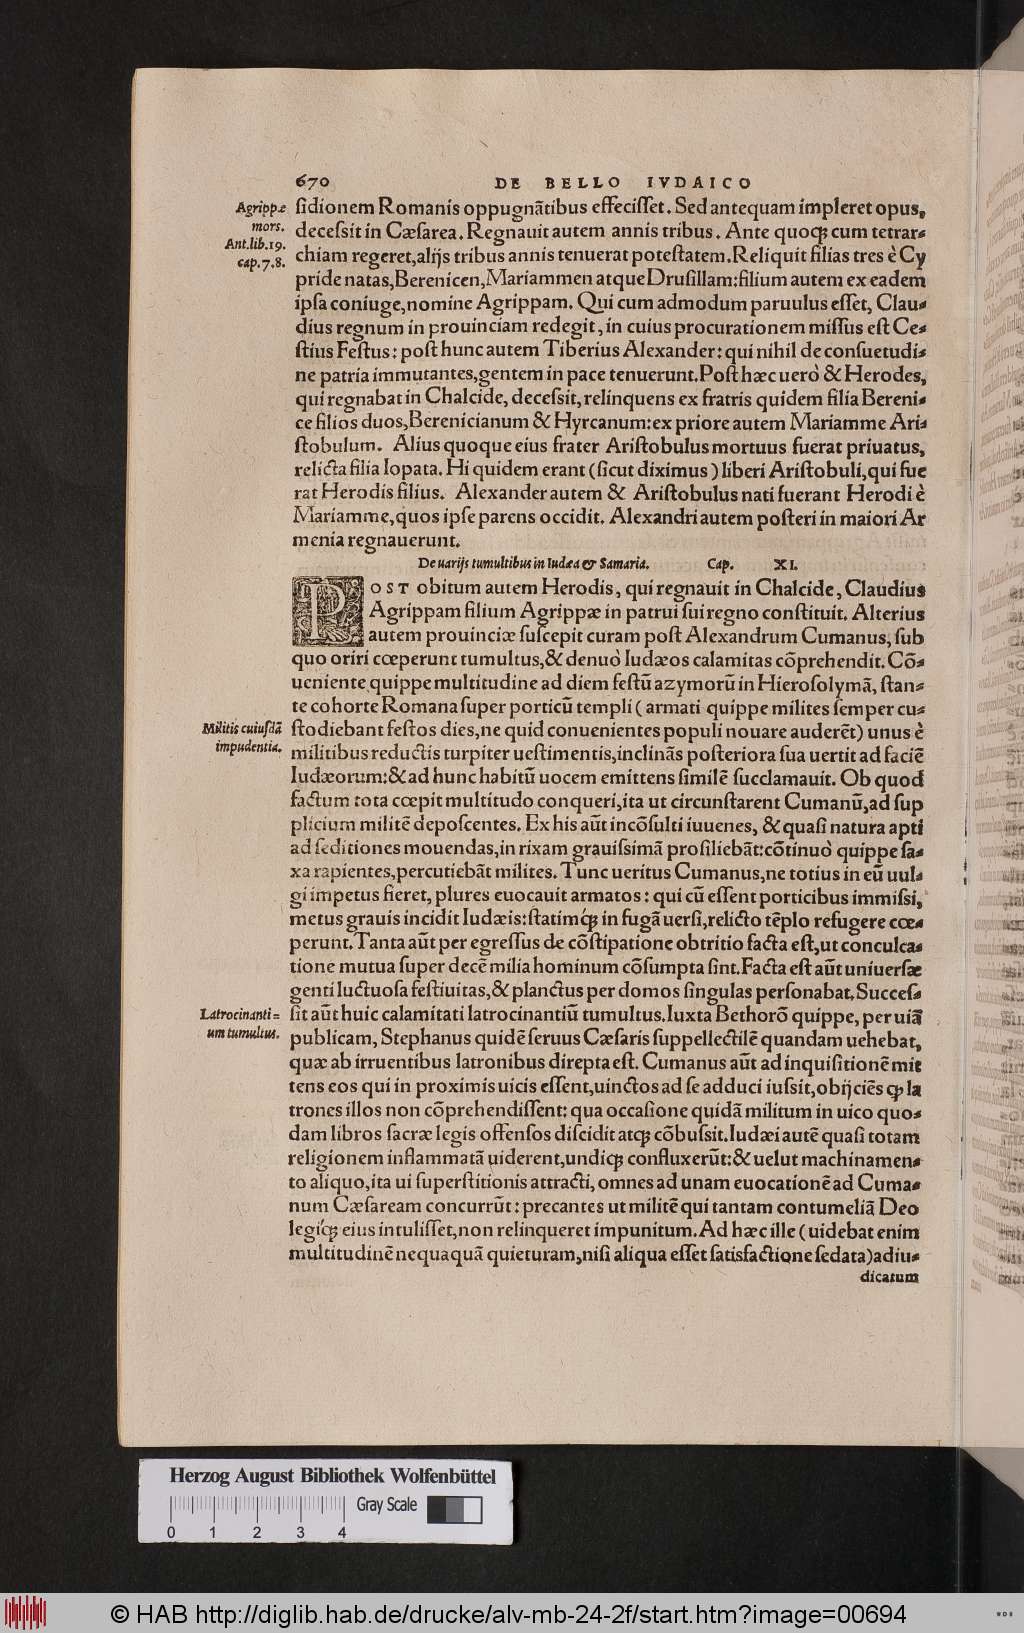 670 DE BELLO IVDAICO
Agrippæ
mors.
Ant.lib.19.
cap.7.8.
ſidionem Romanis oppugnãtibus effeciſſet. Sed antequam impleret opus,
deceſsit in Cæſarea. Regnauit autem annis tribus. Ante quoqꝫ cum tetrar-
chiam regeret, alijs tribus annis tenuerat poteſtatem. Reliquit filias tres è Cy
pride natas, Berenicen, Mariammen atque Druſillam: filium autem ex eadem
ipſa coniuge, nomine Agrippam. Qui cum admodum paruulus eſſet, Clau-
dius regnum in prouinciam redegit, in cuius procurationem miſſus eſt Ce-
ſtius Feſtus: poſt hunc autem Tiberius Alexander: qui nihil de conſuetudi-
ne patria immutantes, gentem in pace tenuerunt. Poſt hæc uerò & Herodes,
qui regnabat in Chalcide, deceſsit, relinquens ex fratris quidem filia Bereni-
ce filios duos, Berenicianum & Hyrcanum: ex priore autem Mariamme Ari-
ſtobulum. Alius quoque eius frater Ariſtobulus mortuus fuerat priuatus,
relicta filia Iopata. Hi quidem erant (ſicut diximus) liberi Ariſtobuli, qui fue
rat Herodis filius. Alexander autem & Ariſtobulus nati fuerant Herodi è
Mariamme, quos ipſe parens occidit. Alexandri autem poſteri in maiori Ar
menia regnauerunt.
De uarijs tumultibus in Iudæa & Samaria. Cap. XI.
POST obitum autem Herodis, qui regnauit in Chalcide, Claudius
Agrippam filium Agrippæ in patrui ſui regno conſtituit. Alterius
autem prouinciæ ſuſcepit curam poſt Alexandrum Cumanus, ſub
quo oriri cœperunt tumultus, & denuò Iudæos calamitas cõprehendit. Cõ-
ueniente quippe multitudine ad diem feſtũ azymorũ in Hieroſolymã, ſtan-
te cohorte Romana ſuper porticũ templi (armati quippe milites ſemper cu-
Militis cuiuſdã
impudentia.
ſtodiebant feſtos dies, ne quid conuenientes populi nouare auderẽt) unus è
militibus reductis turpiter ueſtimentis, inclinãs poſteriora ſua uertit ad faciẽ
Iudæorum: & ad hunc habitũ uocem emittens ſimilẽ ſucclamauit. Ob quod
factum tota cœpit multitudo conqueri, ita ut circunſtarent Cumanũ, ad ſup
plicium militẽ depoſcentes. Ex his aũt incõſulti iuuenes, & quaſi natura apti
ad ſeditiones mouendas, in rixam grauiſsimã proſiliebãt: cõtinuò quippe ſa-
xa rapientes, percutiebãt milites. Tunc ueritus Cumanus, ne totius in eũ uul-
gi impetus fieret, plures euocauit armatos: qui cũ eſſent porticibus immiſsi,
metus grauis incidit Iudæis: ſtatimqꝫ in fugã uerſi, relicto tẽplo refugere cœ-
perunt. Tanta aũt per egreſſus de cõſtipatione obtritio facta eſt, ut conculca-
tione mutua ſuper decẽ milia hominum cõſumpta ſint. Facta eſt aũt uniuerſæ
genti luctuoſa feſtiuitas, & planctus per domos ſingulas perſonabat. Succeſ-
Latrocinanti=
um tumultus.
ſit aũt huic calamitati latrocinantiũ tumultus. Iuxta Bethorõ quippe, per uiã
publicam, Stephanus quidẽ ſeruus Cæſaris ſuppellectilẽ quandam uehebat,
quæ ab irruentibus latronibus direpta eſt. Cumanus aũt ad inquiſitionẽ mit
tens eos qui in proximis uicis eſſent, uinctos ad ſe adduci iuſsit, obijciẽs qꝫ la
trones illos non cõprehendiſſent: qua occaſione quidã militum in uico quo-
dam libros ſacræ legis offenſos diſcidit atqꝫ cõbuſsit. Iudæi autẽ quaſi totam
religionem inflammatã uiderent, undiqꝫ confluxerũt: & uelut machinamen-
to aliquo, ita ui ſuperſtitionis attracti, omnes ad unam euocationẽ ad Cuma-
num Cæſaream concurrũt: precantes ut militẽ qui tantam contumeliã Deo
legiqꝫ eius intuliſſet, non relinqueret impunitum. Ad hæc ille (uidebat enim
multitudinẽ nequaquã quieturam, niſi aliqua eſſet ſatisfactione ſedata) adiu-
dicatum
Herzog August Bibliothek Wolfenbüttel
Gray Scale
0 1 2 3 4
© HAB http://diglib.hab.de/drucke/alv-mb-24-2f/start.htm?image=00694